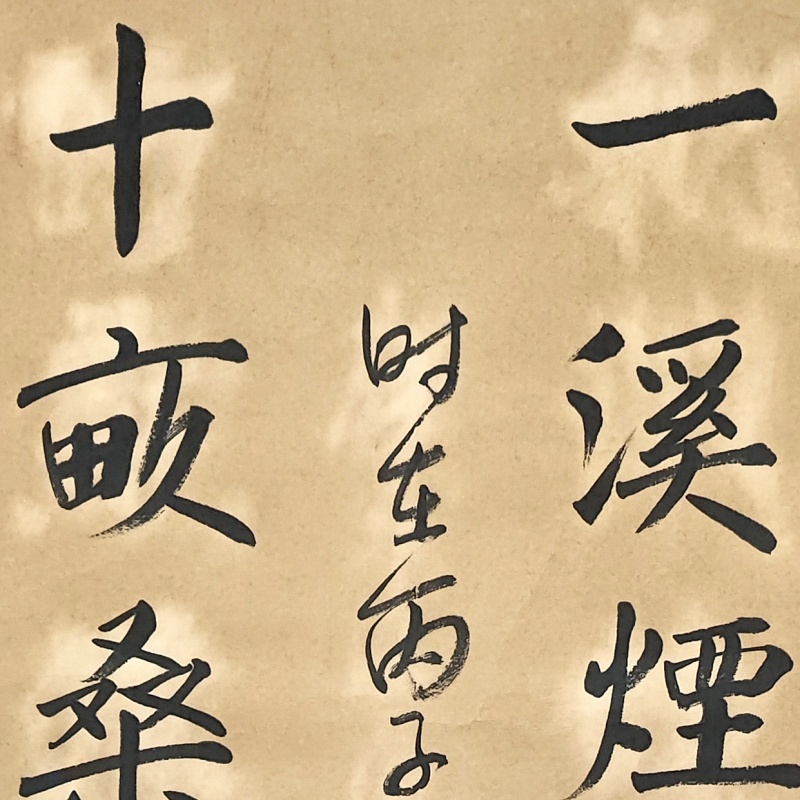 一溪煙
时在丙子
十畝桑